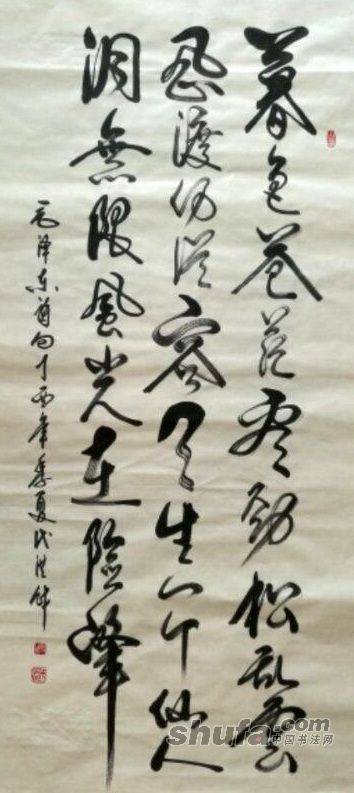 暮色苍茫看劲松乱雲
飛渡仍從容天生一个仙人
洞無限風光在險峰
毛泽东詩句丁酉年季夏
shufa.com
中国书法网